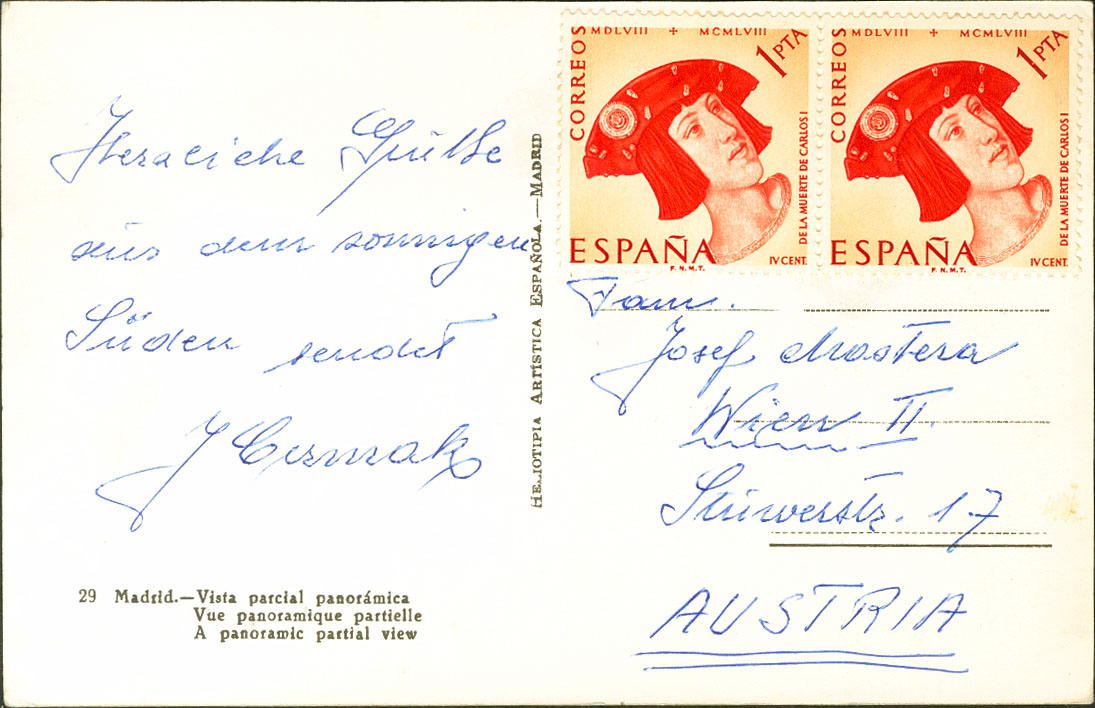 Herzliche Grüße
aus dem sonnigen
Süden sendet
J
29 Madrid.—Vista parcial panorámica
Vue panoramique partielle
A panoramic partial view
HELIOTIPIA ARTÍSTICA ESPAÑOLA.—MADRID
CORREOS
MDLVIII + MCMLVIII
1 PTA
DE LA MUERTE DE CARLOS I
IV CENT.
ESPAÑA
F. N. M. T.
CORREOS
MDLVIII + MCMLVIII
1 PTA
DE LA MUERTE DE CARLOS I
IV CENT.
ESPAÑA
F. N. M. T.
Fam.
Josef
Wien II.
Stuwerstr. 17
AUSTRIA